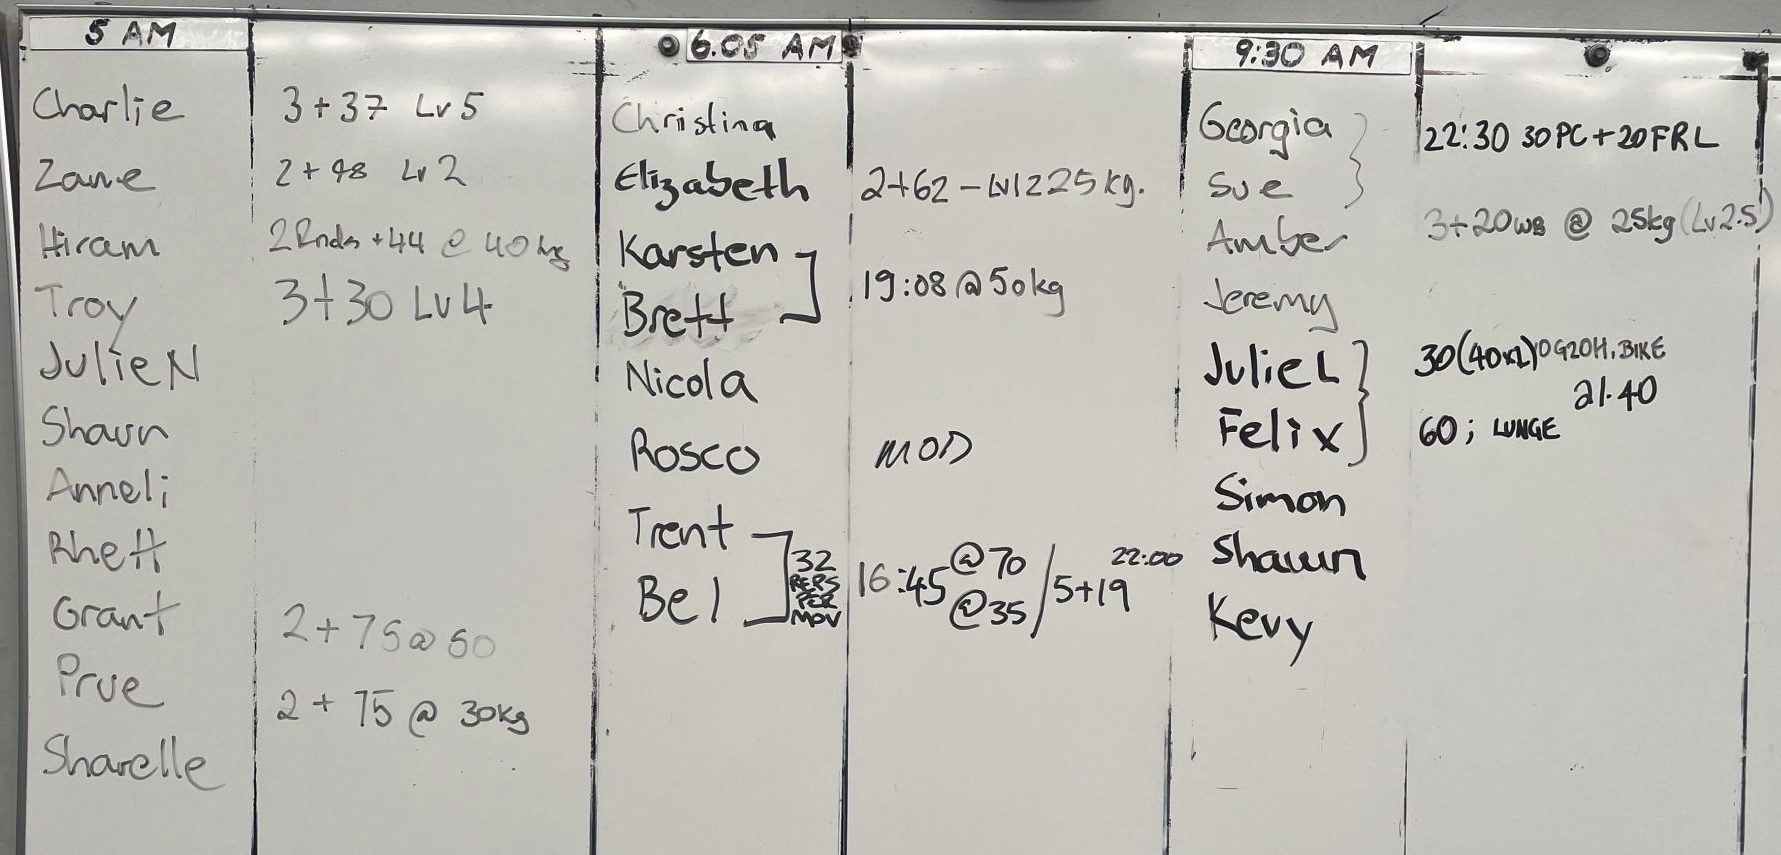 5 AM
Charlie 3+37 Lv 5
Zane 2+98 Lv 2
Hiram 2Rnds +44 @ 40kg
Troy 3+30 Lv 4
Julie N
Shaun
Anneli
Rhett
Grant 2+75@50
Prue 2+75 @ 30kg
Sharelle
6.05 AM
Christina
Elizabeth 2+62 - Lv1 225kg.
Karsten
19:08 @50kg
Brett
Nicola
Rosco MOD
Trent
Bel
32
REPS
PER
MOV
16:45 @70 / 5+19 22:00
@35
9:30 AM
Georgia
22:30 30PC+20FRL
Sue
Amber 3+20WB @ 25kg (Lv2.5)
Jeremy
Julie L 30(40x2) BIKE
21.40
Felix 60; LUNGE
Simon
Shaun
Kevy